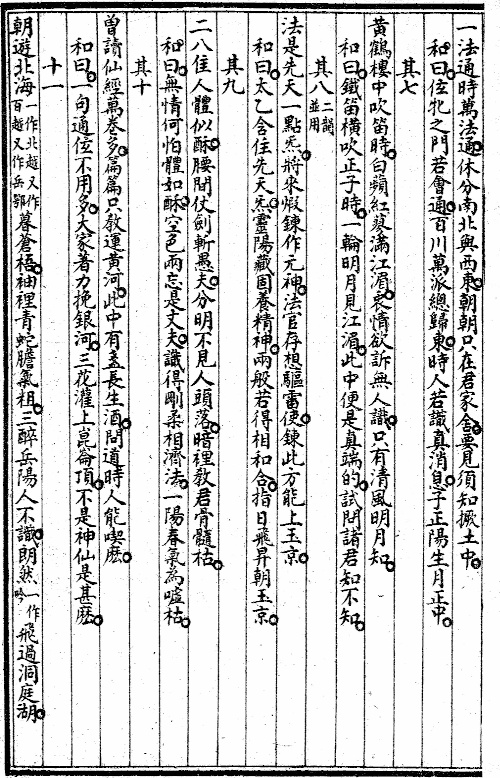 一法通時萬法通休分南北與西東朝朝只在君家舍要見須知撅土中
和曰玄牝之門若會通百川萬派總歸東時人若識真消息子正陽生月正中
其七
黃鶴樓中吹笛時白蘋紅蓼滿江湄衷情欲訴無人識只有清風明月知
和曰鐵笛橫吹正子時一輪明月見江湄此中便是真端的試問諸君知不知
其八二說並用
法是先天一點炁將來煅鍊作元神法官存想驅雷使鍊此方能上玉京
和曰太乙含住先天炁靈陽藏固養精神兩般若得相和合指日飛昇朝玉京
其九
二八佳人體似酥腰間仗劍斬愚夫分明不見人頭落暗裡教君骨髓枯
和曰無情何怕體如酥空色兩忘是丈夫識得剛柔相濟法一陽春氣為噓枯
其十
曾讀仙經萬卷多篇篇只教運黃河此中有盞長生酒問道時人能喫麽
和曰一句通玄不用多大家著力挽銀河三花灌上崑崙頂不是神仙是甚麽
十一
朝遊北海一作北越又作百越又作岳鄂暮蒼梧袖裡青蛇膽氣粗三醉岳陽人不識朗然一作吟飛過洞庭湖